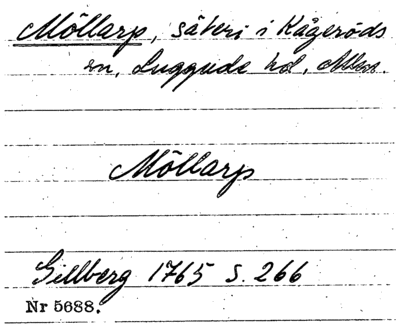 Möllarp, säteri i Kågeröds
sn, Luggude hd, Mlms.
Möllarp
Gillberg 1765 S. 266
Nr 5688.